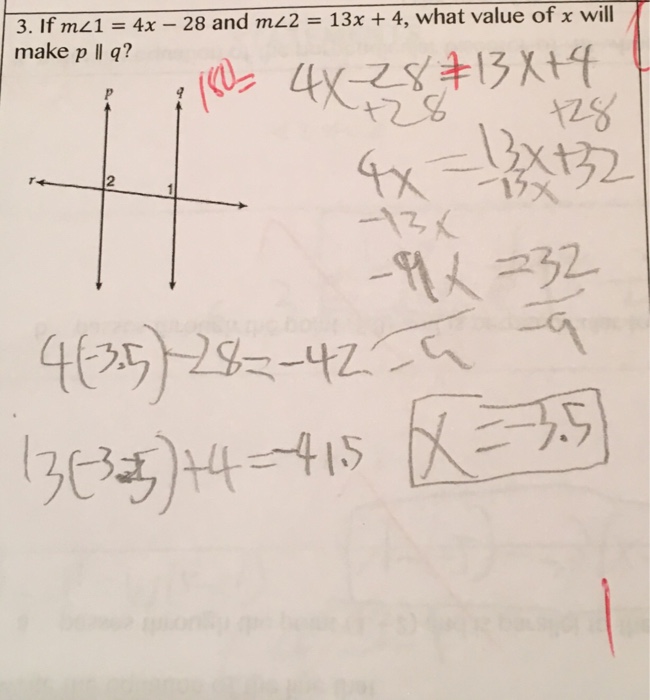 3. If m∠1 = 4x − 28 and m∠2 = 13x + 4, what value of x will
make p ∥ q?
180=
4x-28=13x+4
+28 +28
4x=13x+32
-13x
-13x
-9x=32
-9 -9
p q
r 2 1
4(-3.5)-28=-42
x=-3.5
13(-3.5)+4=-41.5